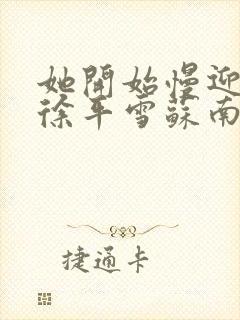 她開始慢迎
徐平雪蘇南
捷通卡